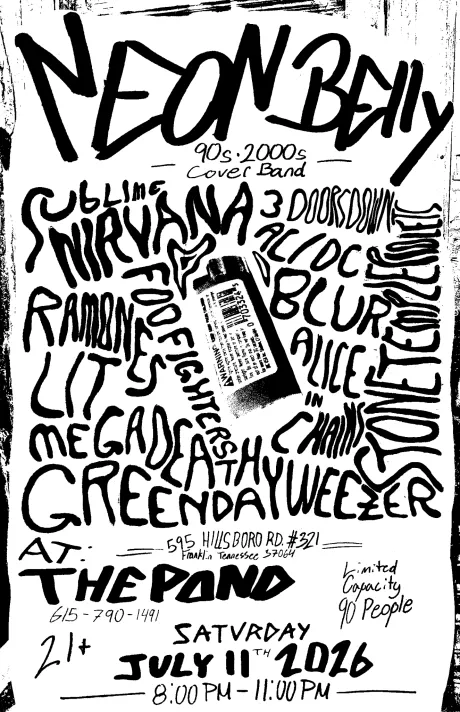 NEON BElly
90s · 2000s
Cover Band
SUBLIME
NIRVANA
3 DOORSDOWN
AC/DC
STONETEMPLEPILOTS
RAMONES
FOOFIGHTERS
WARNING
BLUR
ALICE
IN
CHAINS
LIT
MEGADEATH
GREENDAY
WEEZER
AT:
595 HILLSBORO RD. #321
Franklin Tennessee 37064
THE POND
615-790-1491
Limited
Capacity
90 People
21+
SATURDAY
JULY 11TH 2026
8:00 PM - 11:00 PM